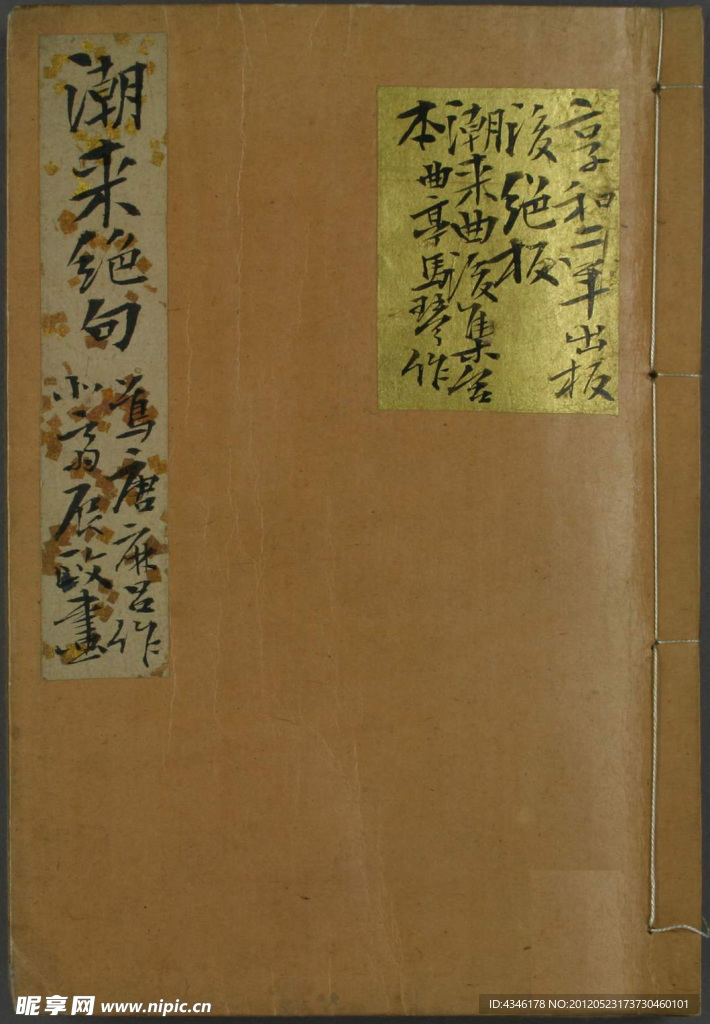 享和二年出板
後絶板
潮来曲後集合
本曲亭馬琴作
潮来絶句
唐麻呂作
画
昵享网 www.nipic.cn
ID:4346178 NO:20120523173730460101